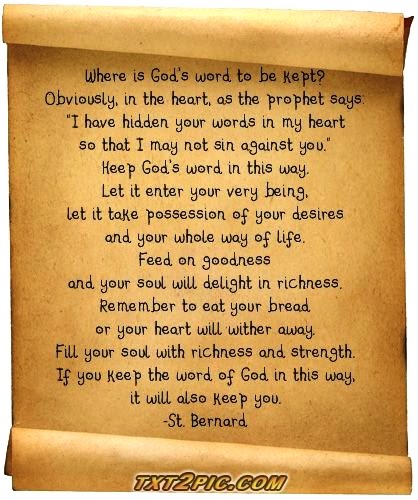 Where is God's word to be kept?
Obviously, in the heart, as the prophet says:
"I have hidden your words in my heart
so that I may not sin against you."
Keep God's word in this way.
Let it enter your very being,
let it take possession of your desires
and your whole way of life.
Feed on goodness
and your soul will delight in richness.
Remember to eat your bread
or your heart will wither away.
Fill your soul with richness and strength.
If you keep the word of God in this way,
it will also keep you.
-St. Bernard
TXT2PIC.COM